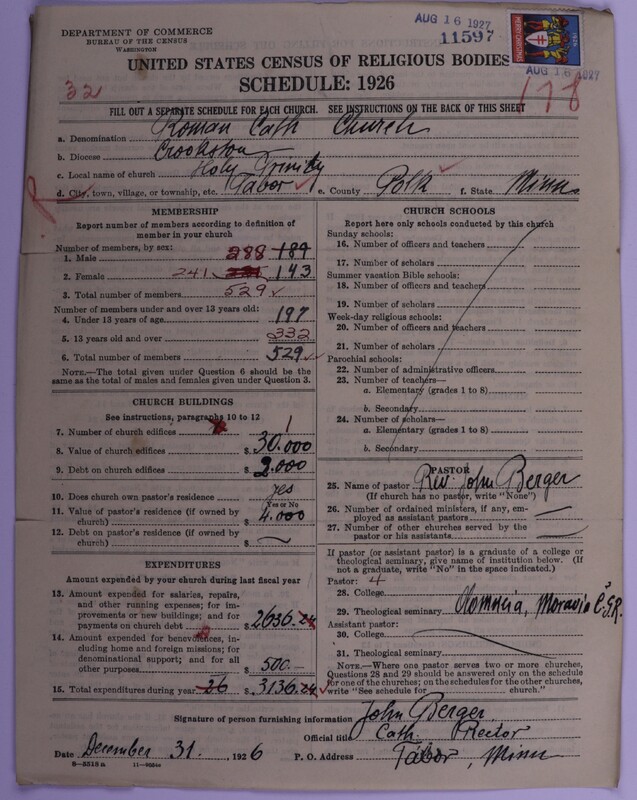 DEPARTMENT OF COMMERCE
BUREAU OF THE CENSUS
WASHINGTON
AUG 16 1927
11597
AUG 16 1927
UNITED STATES CENSUS OF RELIGIOUS BODIES
SCHEDULE: 1926
32
178
FILL OUT A SEPARATE SCHEDULE FOR EACH CHURCH. SEE INSTRUCTIONS ON THE BACK OF THIS SHEET
a. Denomination Roman Cath Church
b. Diocese Crookston
c. Local name of church Holy Trinity
d. City, town, village, or township, etc. Tabor e. County Polk f. State Minn
MEMBERSHIP
Report number of members according to definition of
member in your church
Number of members, by sex:
1. Male 288 189
2. Female 241 143
3. Total number of members 529
Number of members under and over 13 years old:
4. Under 13 years of age 197
5. 13 years old and over 332
6. Total number of members 529
NOTE.—The total given under Question 6 should be
the same as the total of males and females given under Question 3.
CHURCH BUILDINGS
See instructions, paragraphs 10 to 12
7. Number of church edifices 1
8. Value of church edifices $ 30.000
9. Debt on church edifices $ 2.000
10. Does church own pastor's residence yes
Yes or No
11. Value of pastor's residence (if owned by
church) $ 4.000
12. Debt on pastor's residence (if owned by
church) $
EXPENDITURES
Amount expended by your church during last fiscal year
13. Amount expended for salaries, repairs,
and other running expenses; for im-
provements or new buildings; and for
payments on church debt $ 2636.24
14. Amount expended for benevolences, in-
cluding home and foreign missions; for
denominational support; and for all
other purposes $ 500.—
15. Total expenditures during year 26 $ 3136.24
CHURCH SCHOOLS
Report here only schools conducted by this church
Sunday schools:
16. Number of officers and teachers
17. Number of scholars
Summer vacation Bible schools:
18. Number of officers and teachers
19. Number of scholars
Week-day religious schools:
20. Number of officers and teachers
21. Number of scholars
Parochial schools:
22. Number of administrative officers
23. Number of teachers—
a. Elementary (grades 1 to 8)
b. Secondary
24. Number of scholars—
a. Elementary (grades 1 to 8)
b. Secondary
PASTOR
25. Name of pastor Rev. John Berger
(If church has no pastor, write "None")
26. Number of ordained ministers, if any, em-
ployed as assistant pastors —
27. Number of other churches served by the
pastor or his assistants —
If pastor (or assistant pastor) is a graduate of a college or
theological seminary, give name of institution below. (If
not a graduate, write "No" in the space indicated.)
Pastor: 4
28. College
29. Theological seminary Olomucia, Moravia Č.S.R.
Assistant pastor:
30. College
31. Theological seminary
NOTE.—Where one pastor serves two or more churches,
Questions 28 and 29 should be answered only on the schedule
for one of the churches; on the schedules for the other churches,
write "See schedule for church."
Signature of person furnishing information John Berger
Official title Cath. Rector
Date December 31. 1926 P. O. Address Tabor, Minn
8—5318a